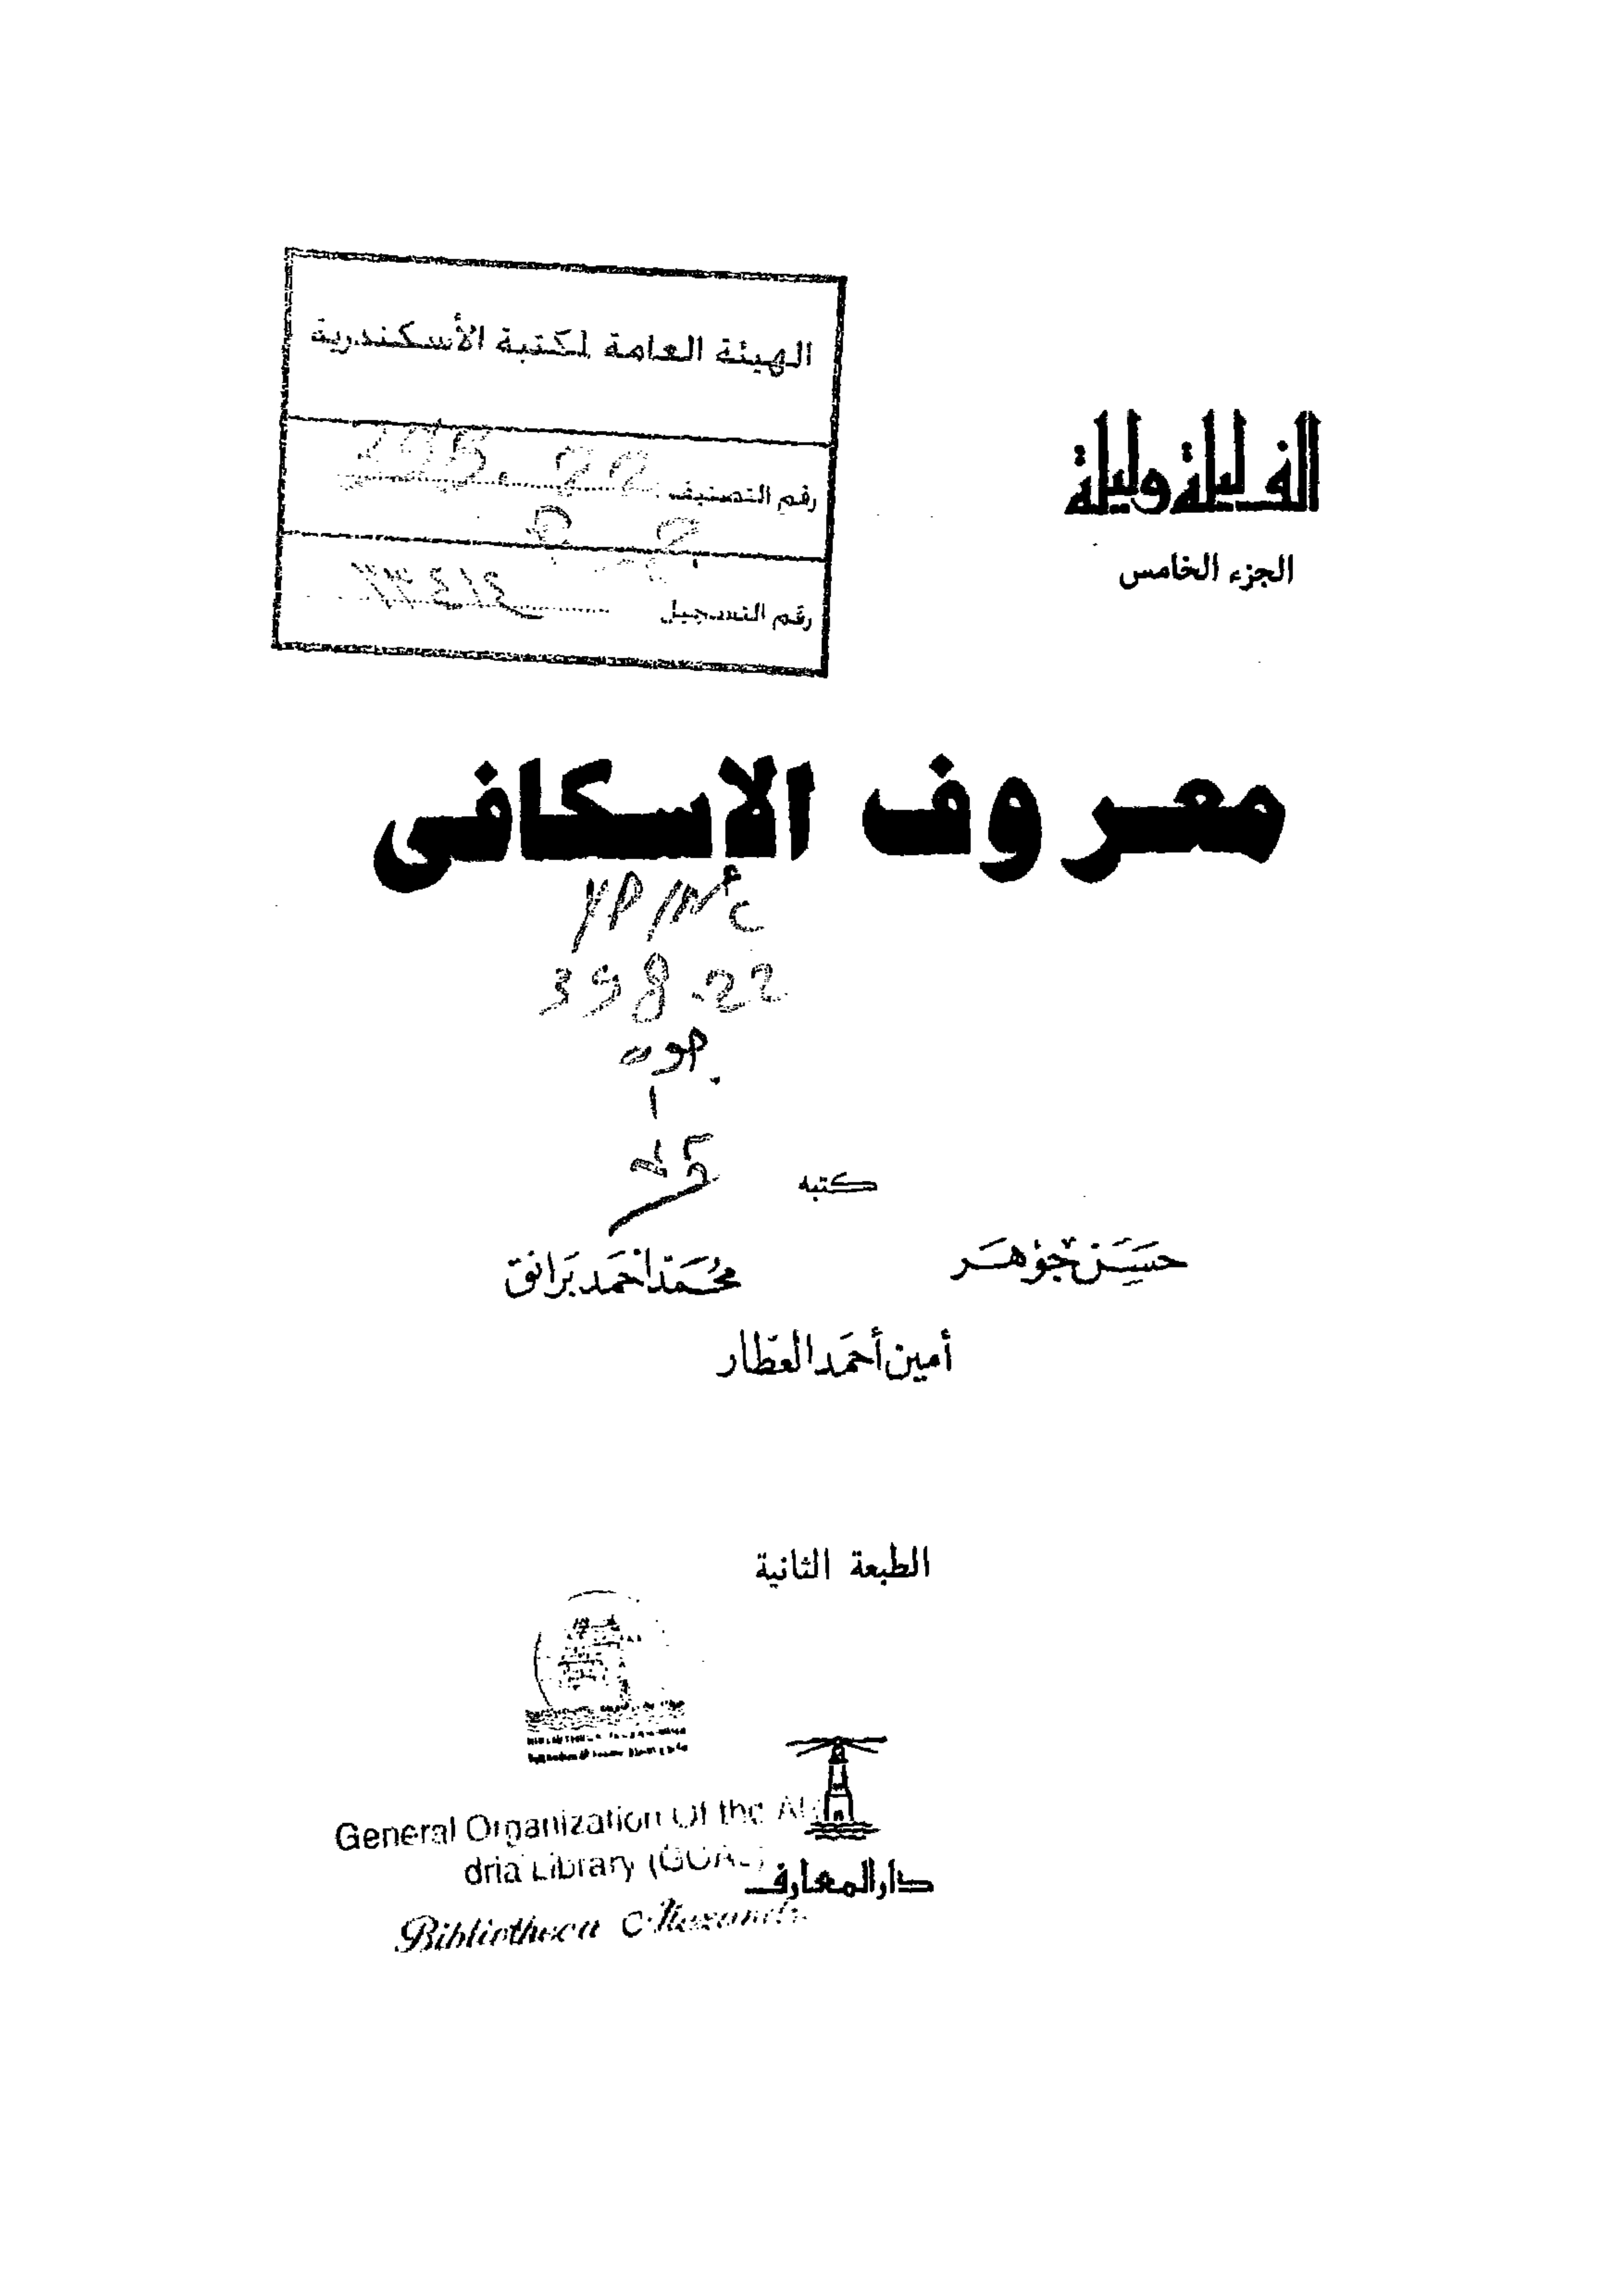 الهيئة العامة لمكتبة الأسكندرية
رقم التصنيف
رقم التسجيل
ألف ليلة وليلة
الجزء الخامس
معروف الإسكافى
398.22
جوه
كتبه
حسن جوهر
محمد أحمد برانق
أمين أحمد العطار
الطبعة الثانية
General Organization Of the
dria Library
دار المعارف
Bibliotheca